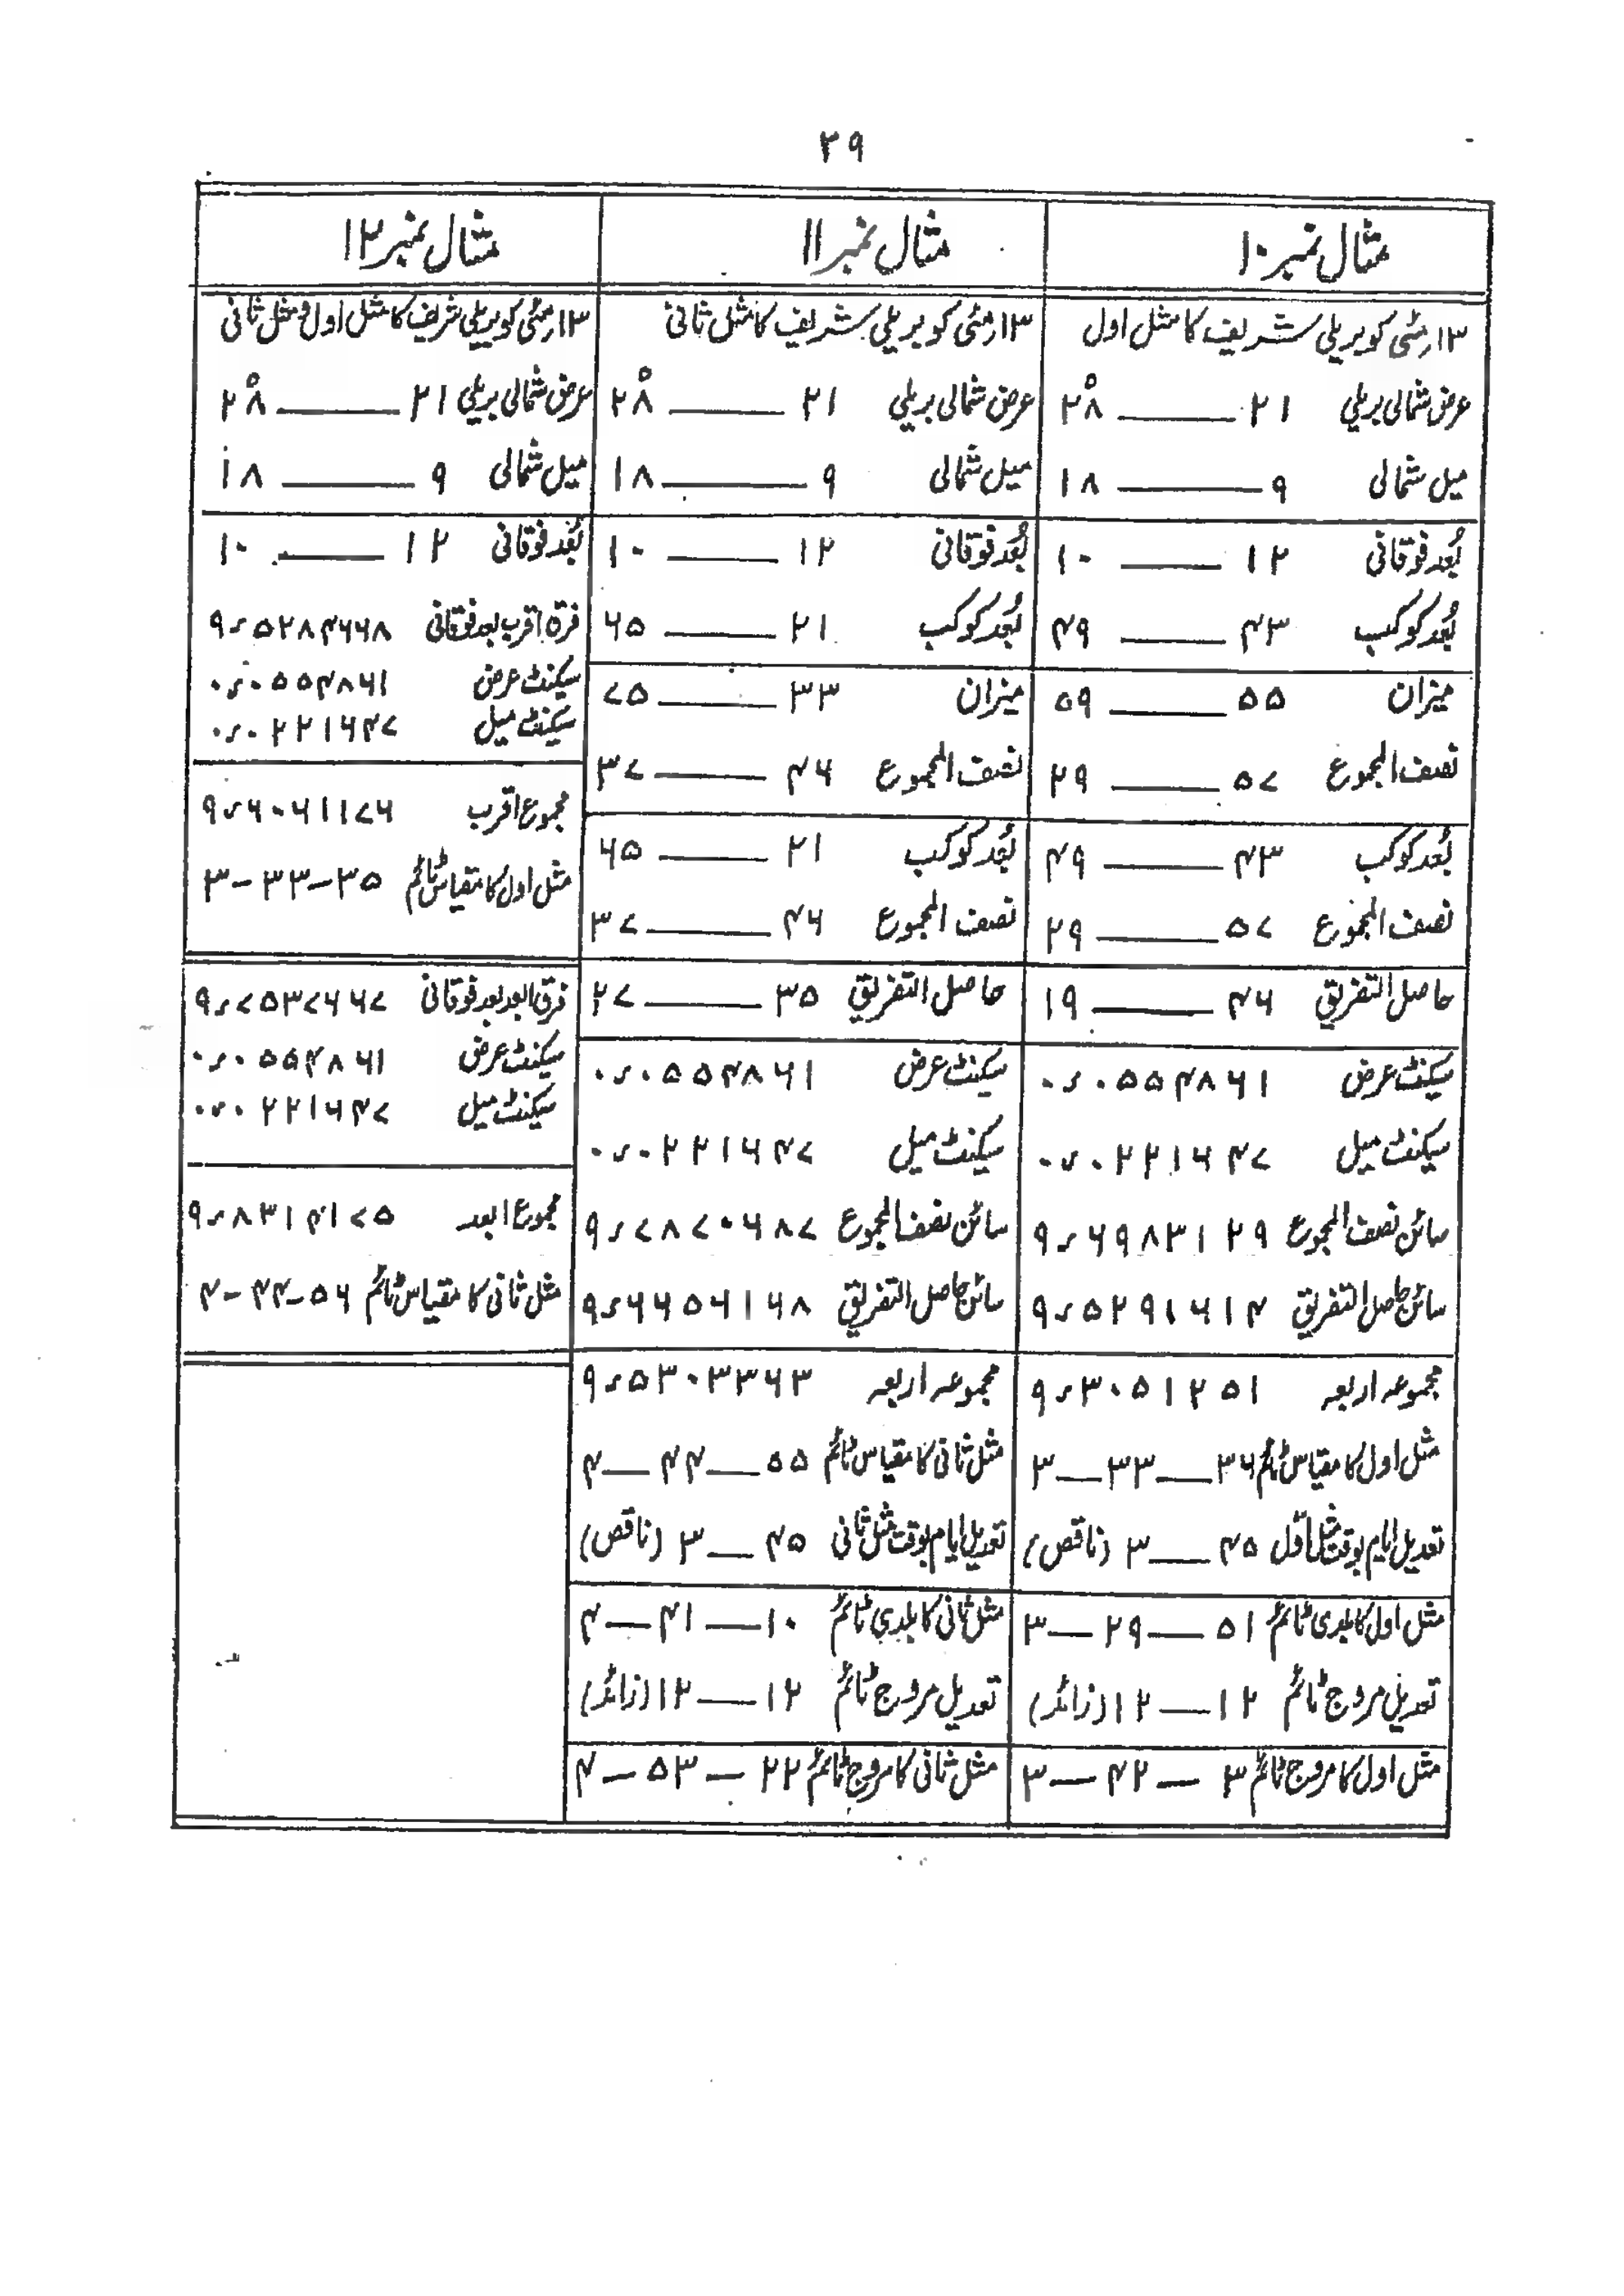 ۳۹
مثال نمبر ۱۰
۱۳؍مئی کو بریلی شریف کا مثل اول
عرض شمالی بریلی ۲۱ — ۲۸°
میل شمالی ۹ — ۱۸
بُعد فوقانی ۱۲ — ۱۰
بُعد کوکب ۴۳ — ۴۹
میزان ۵۵ — ۵۹
نصف المجموع ۵۷ — ۲۹
بُعد کوکب ۴۳ — ۴۹
نصف المجموع ۵۷ — ۲۹
حاصل التفریق ۴۶ — ۱۹
سیکنٹ عرض ۰٫۰۵۵۴۸۶۱
سیکنٹ میل ۰٫۰۲۲۱۶۴۷
سائن نصف المجموع ۹٫۶۹۸۳۱۲۹
سائن حاصل التفریق ۹٫۵۲۹۱۶۱۴
مجموعہ اربعہ ۹٫۳۰۵۱۲۵۱
مثل اول کا مقیاس ٹائم ۳۶ — ۳۳ — ۳
تعدیل ایام بوقت مثل اوّل ۴۵ — ۳ (ناقص)
مثل اول کا بلدی ٹائم ۵۱ — ۲۹ — ۳
تعدیل مروج ٹائم ۱۲ — ۱۲ (زائد)
مثل اول کا مروج ٹائم ۳ — ۴۲ — ۳
مثال نمبر ۱۱
۱۳؍مئی کو بریلی شریف کا مثل ثانی
عرض شمالی بریلی ۲۱ — ۲۸°
میل شمالی ۹ — ۱۸
بُعد فوقانی ۱۲ — ۱۰
بُعد کوکب ۲۱ — ۶۵
میزان ۳۳ — ۷۵
نصف المجموع ۴۶ — ۳۷
بُعد کوکب ۲۱ — ۶۵
نصف المجموع ۴۶ — ۳۷
حاصل التفریق ۳۵ — ۲۷
سیکنٹ عرض ۰٫۰۵۵۴۸۶۱
سیکنٹ میل ۰٫۰۲۲۱۶۴۷
سائن نصف المجموع ۹٫۷۸۷۰۶۸۷
سائن حاصل التفریق ۹٫۶۶۵۶۱۶۸
مجموعہ اربعہ ۹٫۵۳۰۳۳۶۳
مثل ثانی کا مقیاس ٹائم ۵۵ — ۴۴ — ۴
تعدیل ایام بوقت مثل ثانی ۴۵ — ۳ (ناقص)
مثل ثانی کا بلدی ٹائم ۱۰ — ۴۱ — ۴
تعدیل مروج ٹائم ۱۲ — ۱۲ (زائد)
مثل ثانی کا مروج ٹائم ۲۲ — ۵۳ — ۴
مثال نمبر ۱۲
۱۳؍مئی کو بریلی شریف کا مثل اول و مثل ثانی
عرض شمالی بریلی ۲۱ — ۲۸°
میل شمالی ۹ — ۱۸
بُعد فوقانی ۱۲ — ۱۰
فرق اقرب بعد فوقانی ۹٫۵۲۸۴۶۶۸
سیکنٹ عرض ۰٫۰۵۵۴۸۶۱
سیکنٹ میل ۰٫۰۲۲۱۶۴۷
مجموع اقرب ۹٫۶۰۶۱۱۷۶
مثل اول کا مقیاس ٹائم ۳۵ — ۳۳ — ۳
فرق ابعد بعد فوقانی ۹٫۷۵۳۷۶۶۷
سیکنٹ عرض ۰٫۰۵۵۴۸۶۱
سیکنٹ میل ۰٫۰۲۲۱۶۴۷
مجموع ابعد ۹٫۸۳۱۴۱۷۵
مثل ثانی کا مقیاس ٹائم ۵۶ — ۴۴ — ۴